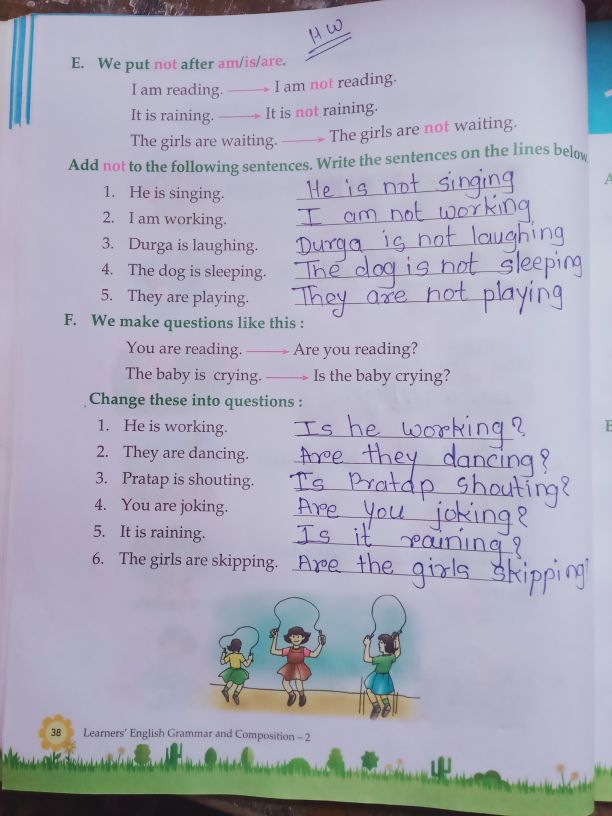 H.W
E. We put not after am/is/are.
I am reading. → I am not reading.
It is raining. → It is not raining.
The girls are waiting. → The girls are not waiting.
Add not to the following sentences. Write the sentences on the lines below.
1. He is singing. He is not singing
2. I am working. I am not working
3. Durga is laughing. Durga is not laughing
4. The dog is sleeping. The dog is not sleeping
5. They are playing. They are not playing
F. We make questions like this :
You are reading. → Are you reading?
The baby is crying. → Is the baby crying?
Change these into questions :
1. He is working. Is he working?
2. They are dancing. Are they dancing?
3. Pratap is shouting. Is Pratap shouting?
4. You are joking. Are you joking?
5. It is raining. Is it raining?
6. The girls are skipping. Are the girls skipping?
38 Learners' English Grammar and Composition – 2